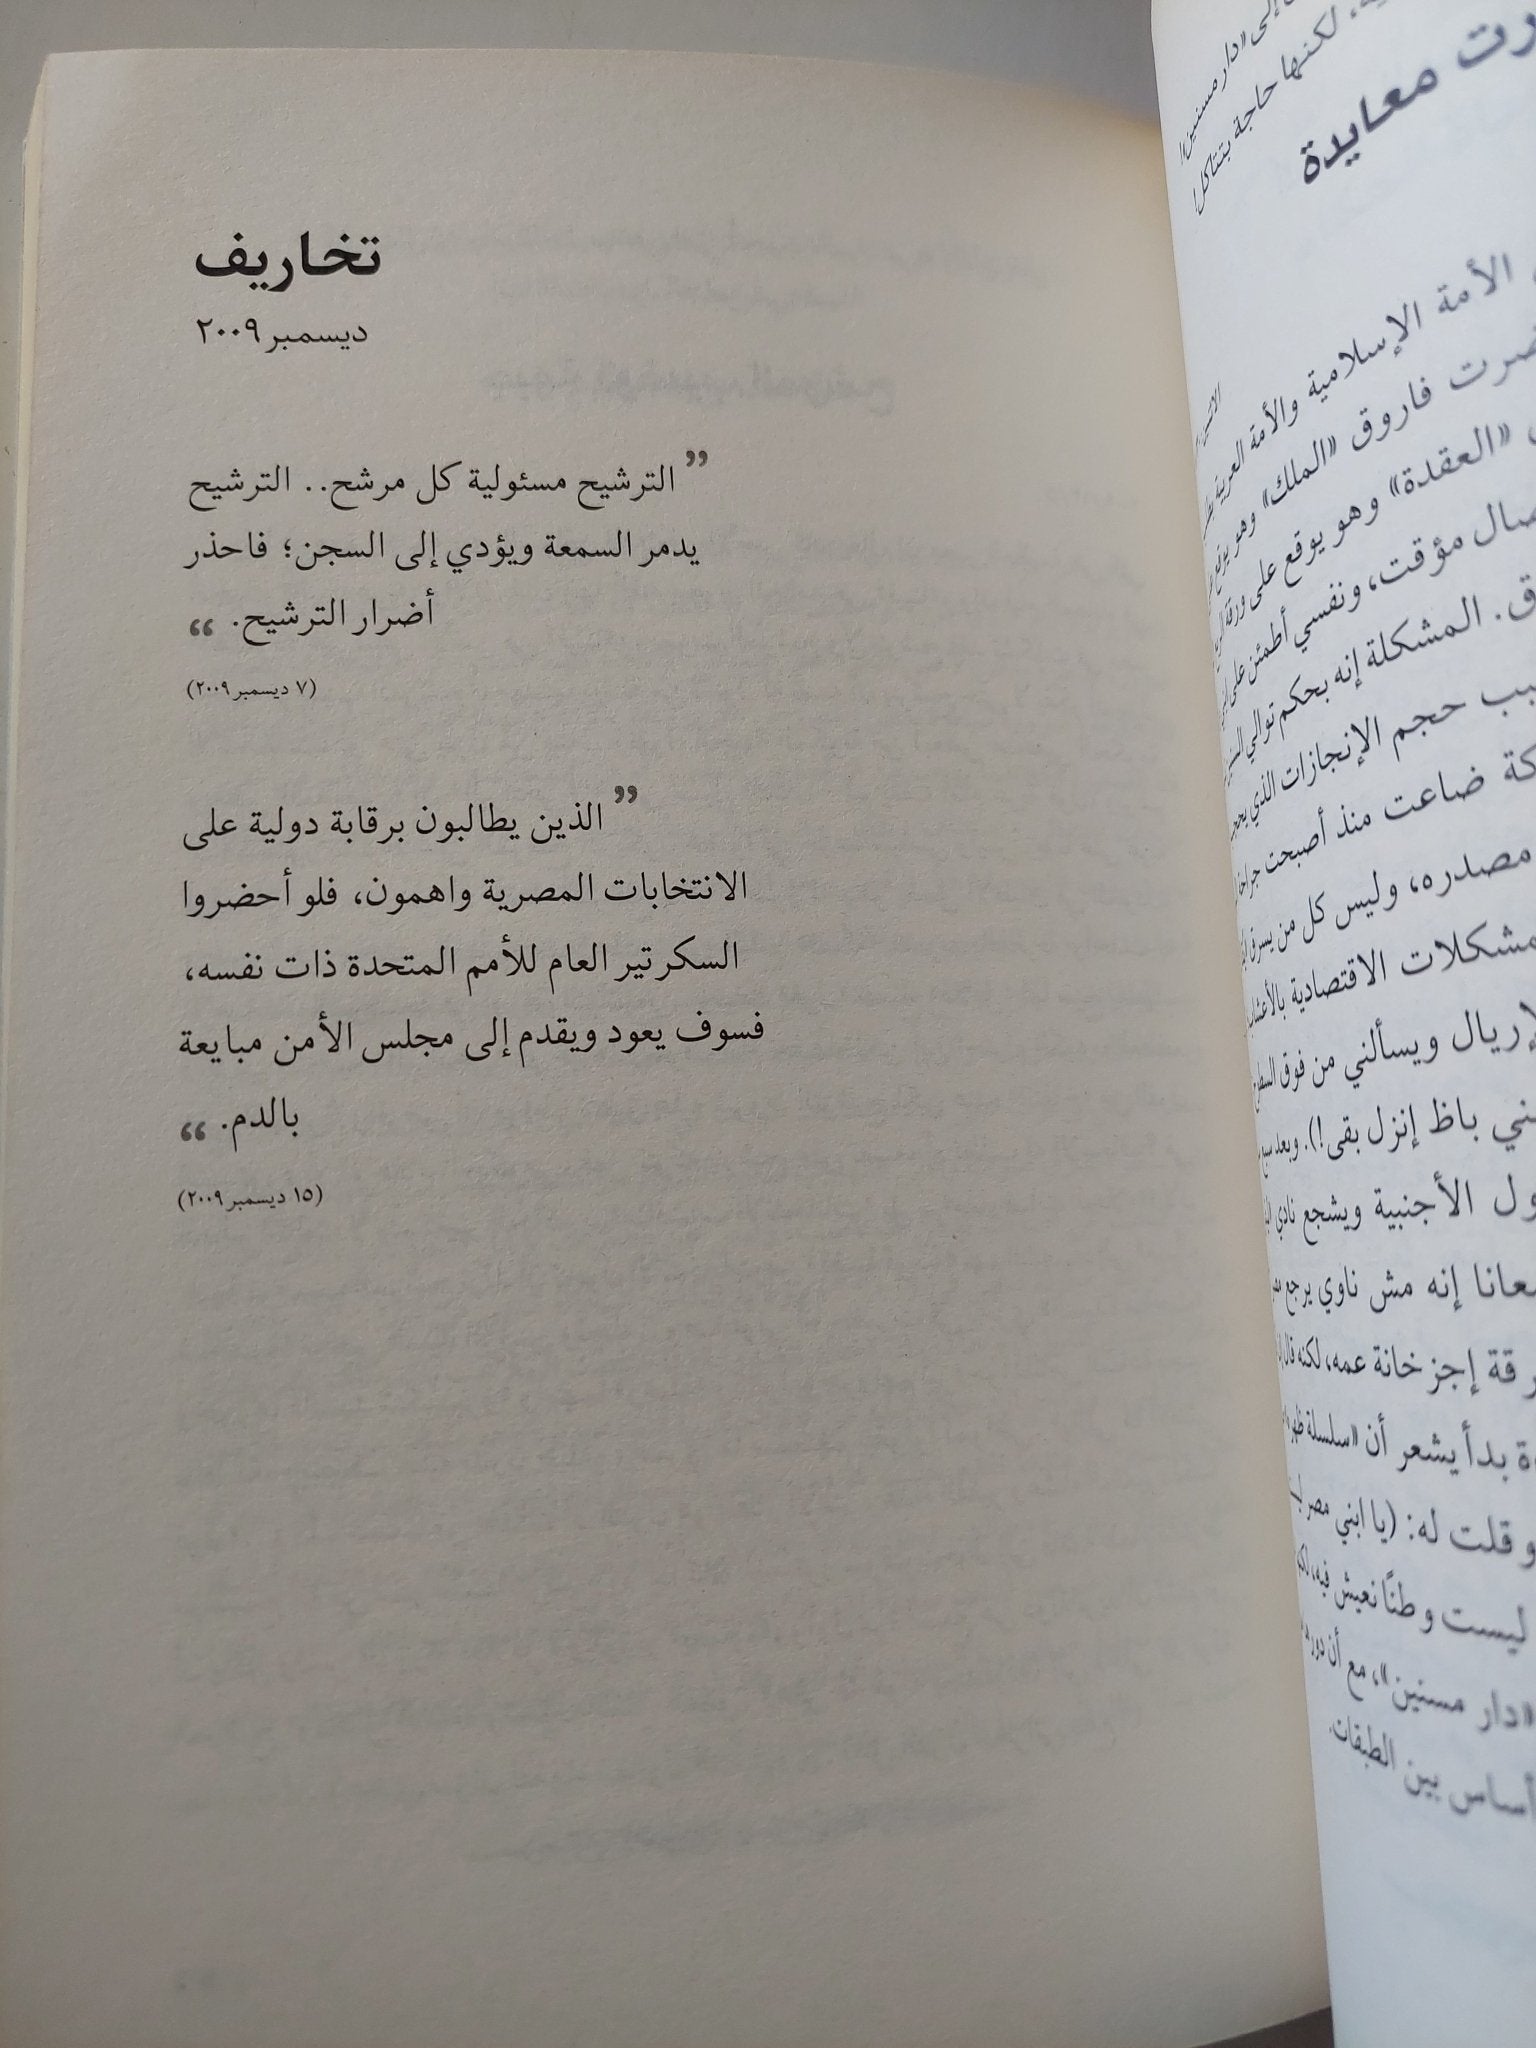 تخاريف
ديسمبر ٢٠٠٩
” الترشيح مسئولية كل مرشح.. الترشيح
يدمر السمعة ويؤدي إلى السجن؛ فاحذر
أضرار الترشيح. “
(٧ ديسمبر ٢٠٠٩)
” الذين يطالبون برقابة دولية على
الانتخابات المصرية واهمون، فلو أحضروا
السكرتير العام للأمم المتحدة ذات نفسه،
فسوف يعود ويقدم إلى مجلس الأمن مبايعة
بالدم. “
(١٥ ديسمبر ٢٠٠٩)
إلى «دار مسنين»!
لكنها حاجة بتتاكل!
معايدة
الأمة الإسلامية والأمة العربية
فاروق «الملك» وهو يوقع
«العقدة» وهو يوقع على ورقة
مؤقت، ونفسي أطمئن على
المشكلة إنه بحكم توالي
حجم الإنجازات الذي
ضاعت منذ أصبحت
مصدره، وليس كل من يسرق
مشكلات الاقتصادية
ويسألني من فوق
باظ إنزل بقى!). وبعد
الأجنبية ويشجع نادي
إنه مش ناوي يرجع
إجزخانة عمه، لكنه قال
بدأ يشعر أن «سلسلة
وقلت له: (يا ابني مصر
ليست وطنًا نعيش فيه،
«دار مسنين»، مع أن
أساس بين الطبقات.